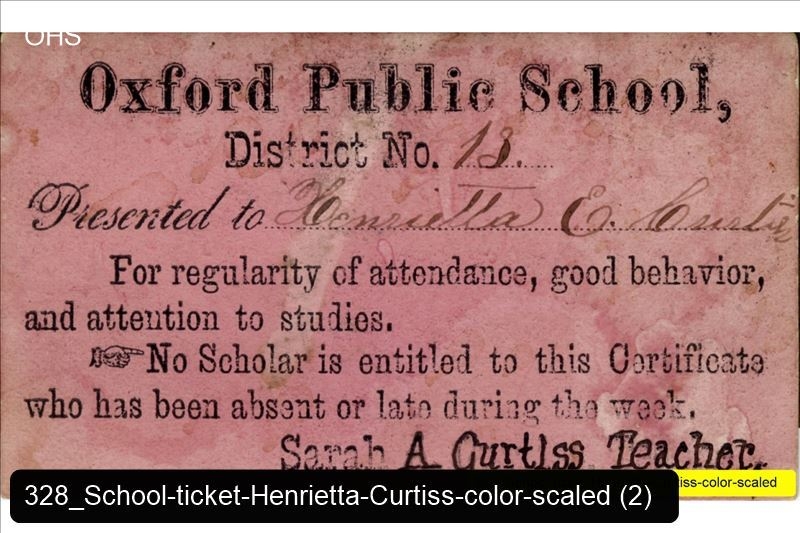 OHS
Oxford Public School,
District No. 13.
Presented to Henrietta E. Curtiss
For regularity of attendance, good behavior,
and attention to studies.
☞ No Scholar is entitled to this Certificate
who has been absent or late during the week.
Sarah A. Curtiss, Teacher.
tiss-color-scaled
328_School-ticket-Henrietta-Curtiss-color-scaled (2)